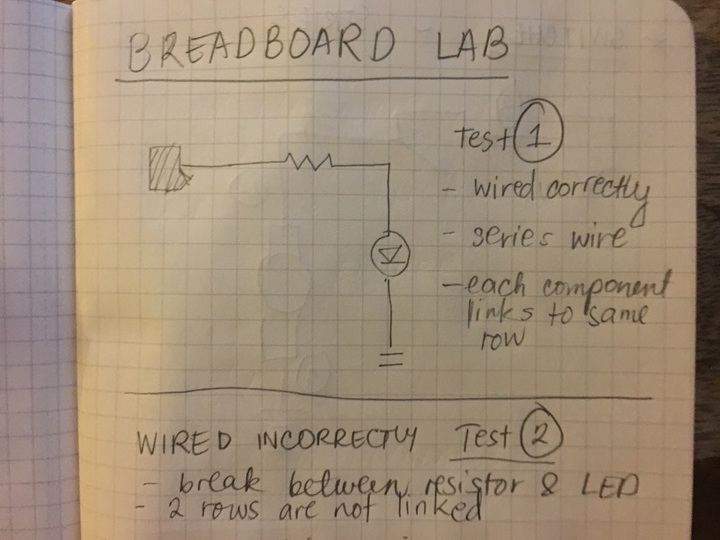 BREADBOARD LAB
test 1
- wired correctly
- series wire
- each component
links to same
row
WIRED INCORRECTLY Test 2
- break between resistor & LED
- 2 rows are not linked